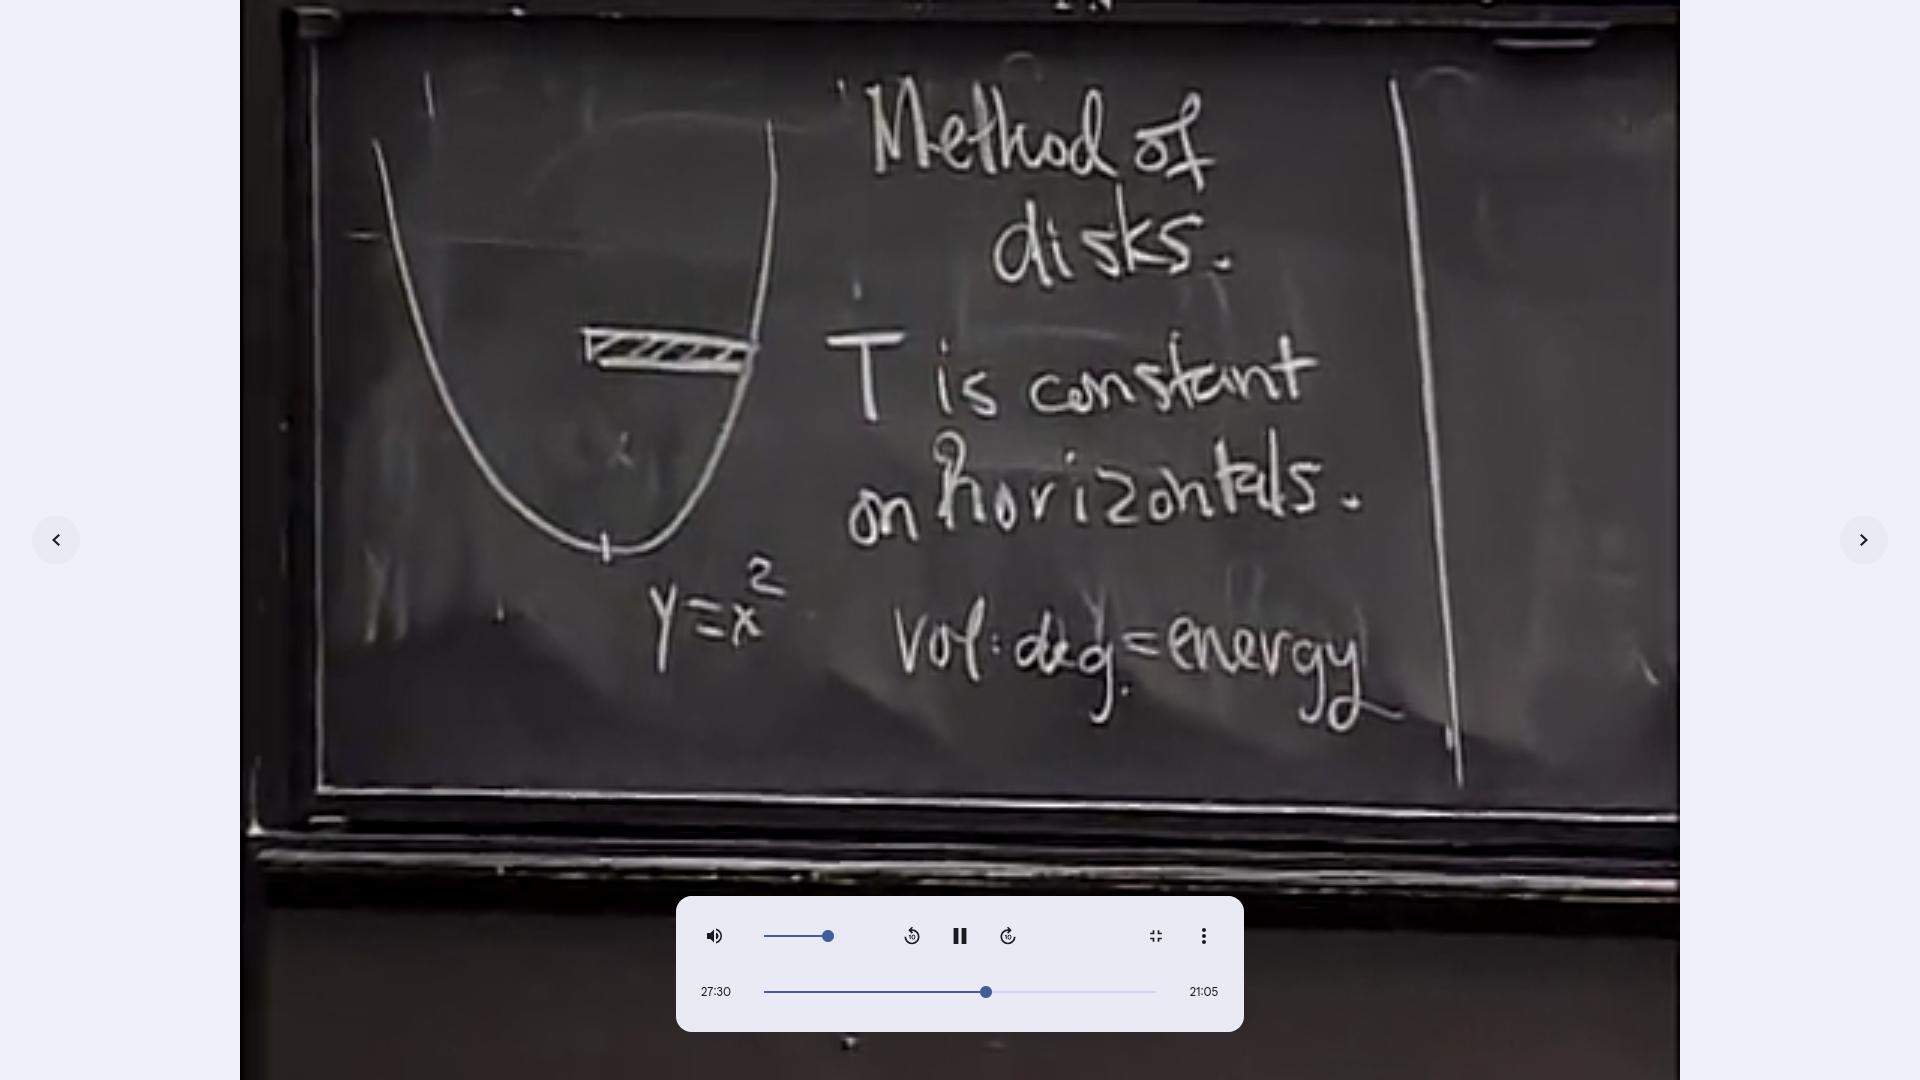 Method of
disks.
T is constant
on horizontals.
y=x²
Vol·deg.=energy
10
10
27:30
21:05